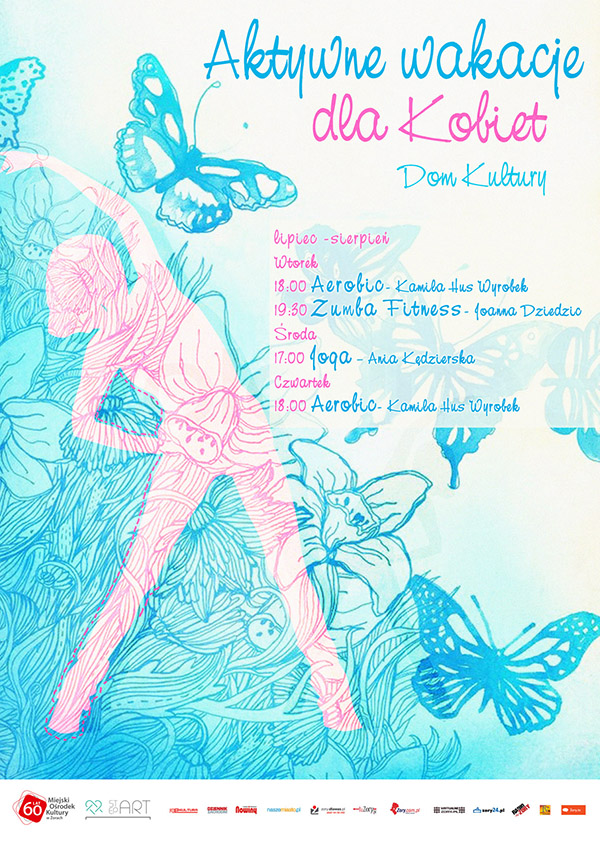 Aktywne wakacje
dla Kobiet
Dom Kultury
lipiec -sierpień
Wtorek
18:00 Aerobic- Kamila Hus Wyrobek
19:30 Zumba Fitness- Joanna Dziedzic
Środa
17:00 Joga – Ania Kędzierska
Czwartek
18:00 Aerobic- Kamila Hus Wyrobek
60 LAT
Miejski
Ośrodek
Kultury
w Żorach
START
DZIENNIK
Nowiny
naszemiasto.pl
Żory.com.pl
zory24.pl